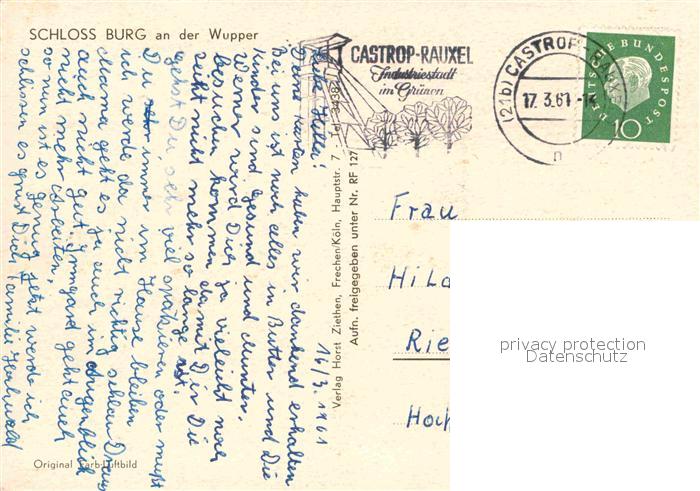 SCHLOSS BURG an der Wupper
CASTROP-RAUXEL
Industriestadt
im Grünen
(21b) CASTROP-RAUXEL
17.3.61.-1
n
DEUTSCHE BUNDESPOST
10
16/3. 1961
Liebe Hilde!
Deine Karten haben wir dankend erhalten
Bei uns ist noch alles in Butter und die
Kinder sind gesund und munter.
Werner wird Dich ja vieleicht noch
besuchen kommen damit Dir die
Zeit nicht mehr so lange ist.
gehst Du sehr viel spatzieren oder mußt
Du immer im Hause bleiben
ich werde da nicht richtig schlau
Mama geht es ja auch im Augenblick
auch nicht gut. Irmgard geht auch
nicht mehr arbeiten,
so nun ist es genug jetzt werde ich
schliesen es grüst Dich Familie
Verlag Horst Ziethen, Frechen/Köln, Hauptstr. 7 Tel.
Aufn. freigegeben unter Nr. RF 127
Frau
Hil
Rie
Hoch
privacy protection
Datenschutz
Original Farb-Luftbild